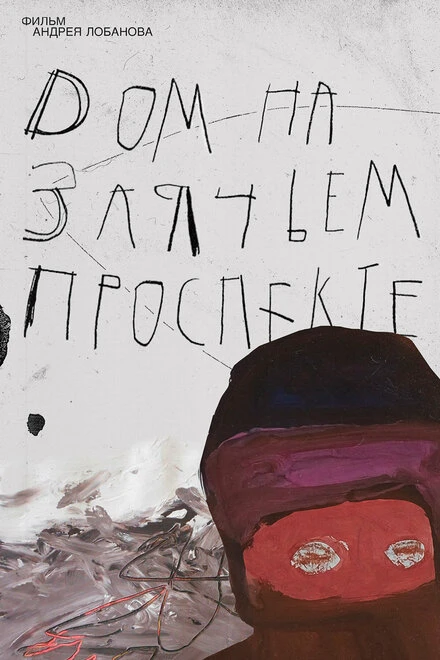 ФИЛЬМ
АНДРЕЯ ЛОБАНОВА
ДОМ НА
ЗАЯЧЬЕМ
ПРОСПЕКТЕ